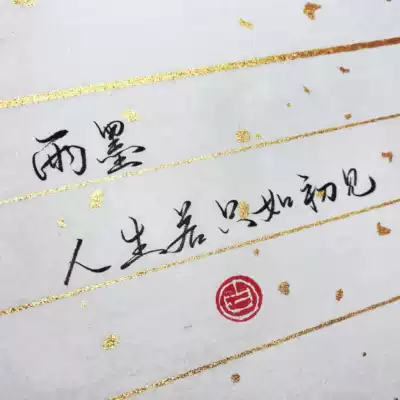 雨墨
人生若只如初见